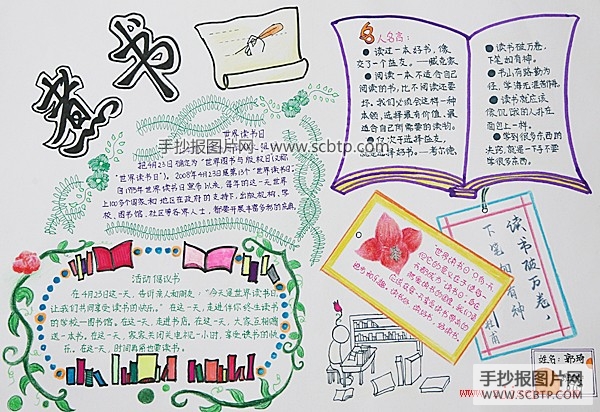 煮书
世界读书日
把4月23日确定为“世界图书与版权日（又称
“世界读书日”）。2008年4月23日是第13个“世界读书日”。
自1995年世界读书日宣布以来，每年的这一天，世界
上100多个国家和地区在政府的支持下，出版机构、学
校、图书馆、社区等各界人士，都要开展丰富多彩的庆典。
手抄报图片网
www.scbtp.com
名人名言：
●读过一本好书，像
交了一个益友。——臧克家
●阅读一本不适合自己
阅读的书，比不阅读还要
坏。我们必须会这样一种
本领，选择最有价值、最
适合自己所需要的读物。
手抄报图片网
www.scbtp.com
●读书破万卷，
下笔如有神。
●书山有路勤为
径，学海无涯苦作舟
●读书就应该
像饥饿的人扑在
面包上一样。
●学到很多东西的
诀窍，就是一下子不要
学很多东西。
活动倡议书
在4月23日这一天，告诉亲人和朋友：“今天是世界读书日，
让我们共同享受读书的快乐。”在这一天，走进伴你终生读书
的学校—图书馆。在这一天，走进书店。在这一天，大家互相赠
送一本书。在这一天，家家关闭电视一小时，享受读书的快
乐。在这一天，时间再紧也要读书。
读书破万卷，
下笔如有神
杜甫
姓名：郭琦
手抄报图片网
WWW.SCBTP.COM